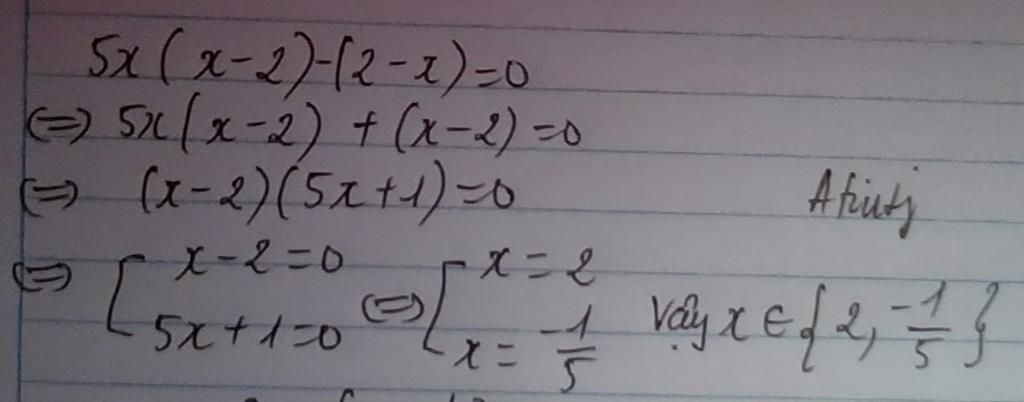 5x(x-2)-(2-x)=0
⇔ 5x(x-2) + (x-2) =0
⇔ (x-2)(5x+1)=0
⇔ [ x-2=0 ⇔ [ x = 2
5x+1=0 x = -1/5 Vậy x ∈ {2, -1/5}